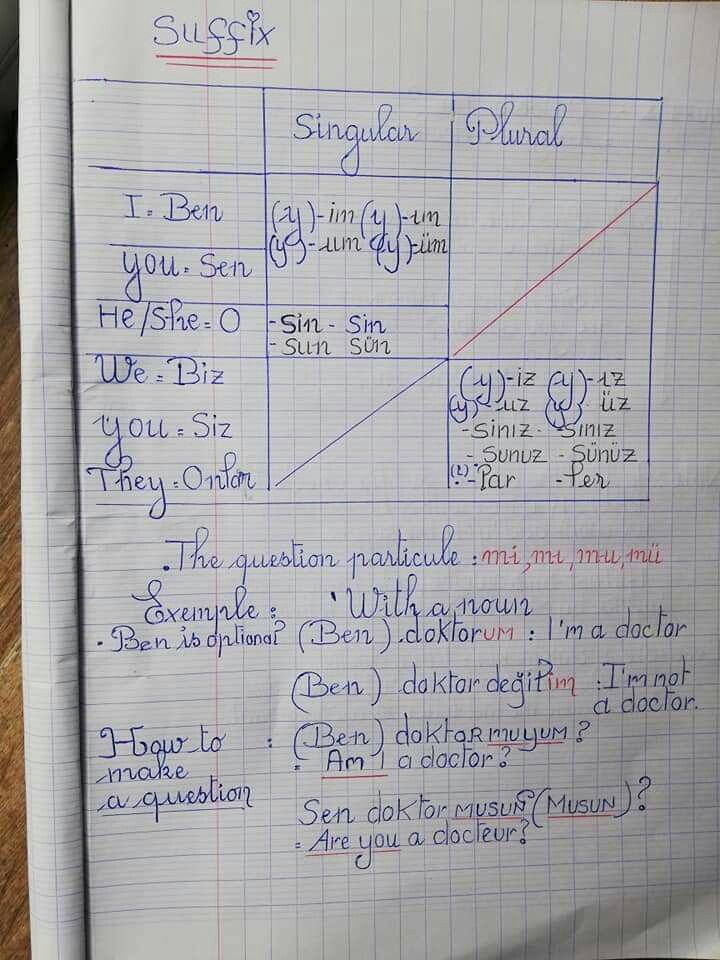 Suffix
Singular Plural
I = Ben (y)-im (y)-ım
(y)-um (y)-üm
you = Sen
He/She = O -Sin - Sın
- Sun Sün
We = Biz (y)-iz (y)-ız
(y)-uz (y)- üz
you = Siz -Siniz - -Sınız
- Sunuz - Sünüz
They = Onlar -lar -ler
. The question particule : mi, mı, mu, mü
Exemple : With a noun
. Ben is optional (Ben) .doktorum : I'm a doctor
(Ben) doktor değilim : I'm not
a doctor.
How to : (Ben) doktor muyum ?
make = Am I a doctor ?
a question
Sen doktor musun (Musun) ?
= Are you a docteur ?